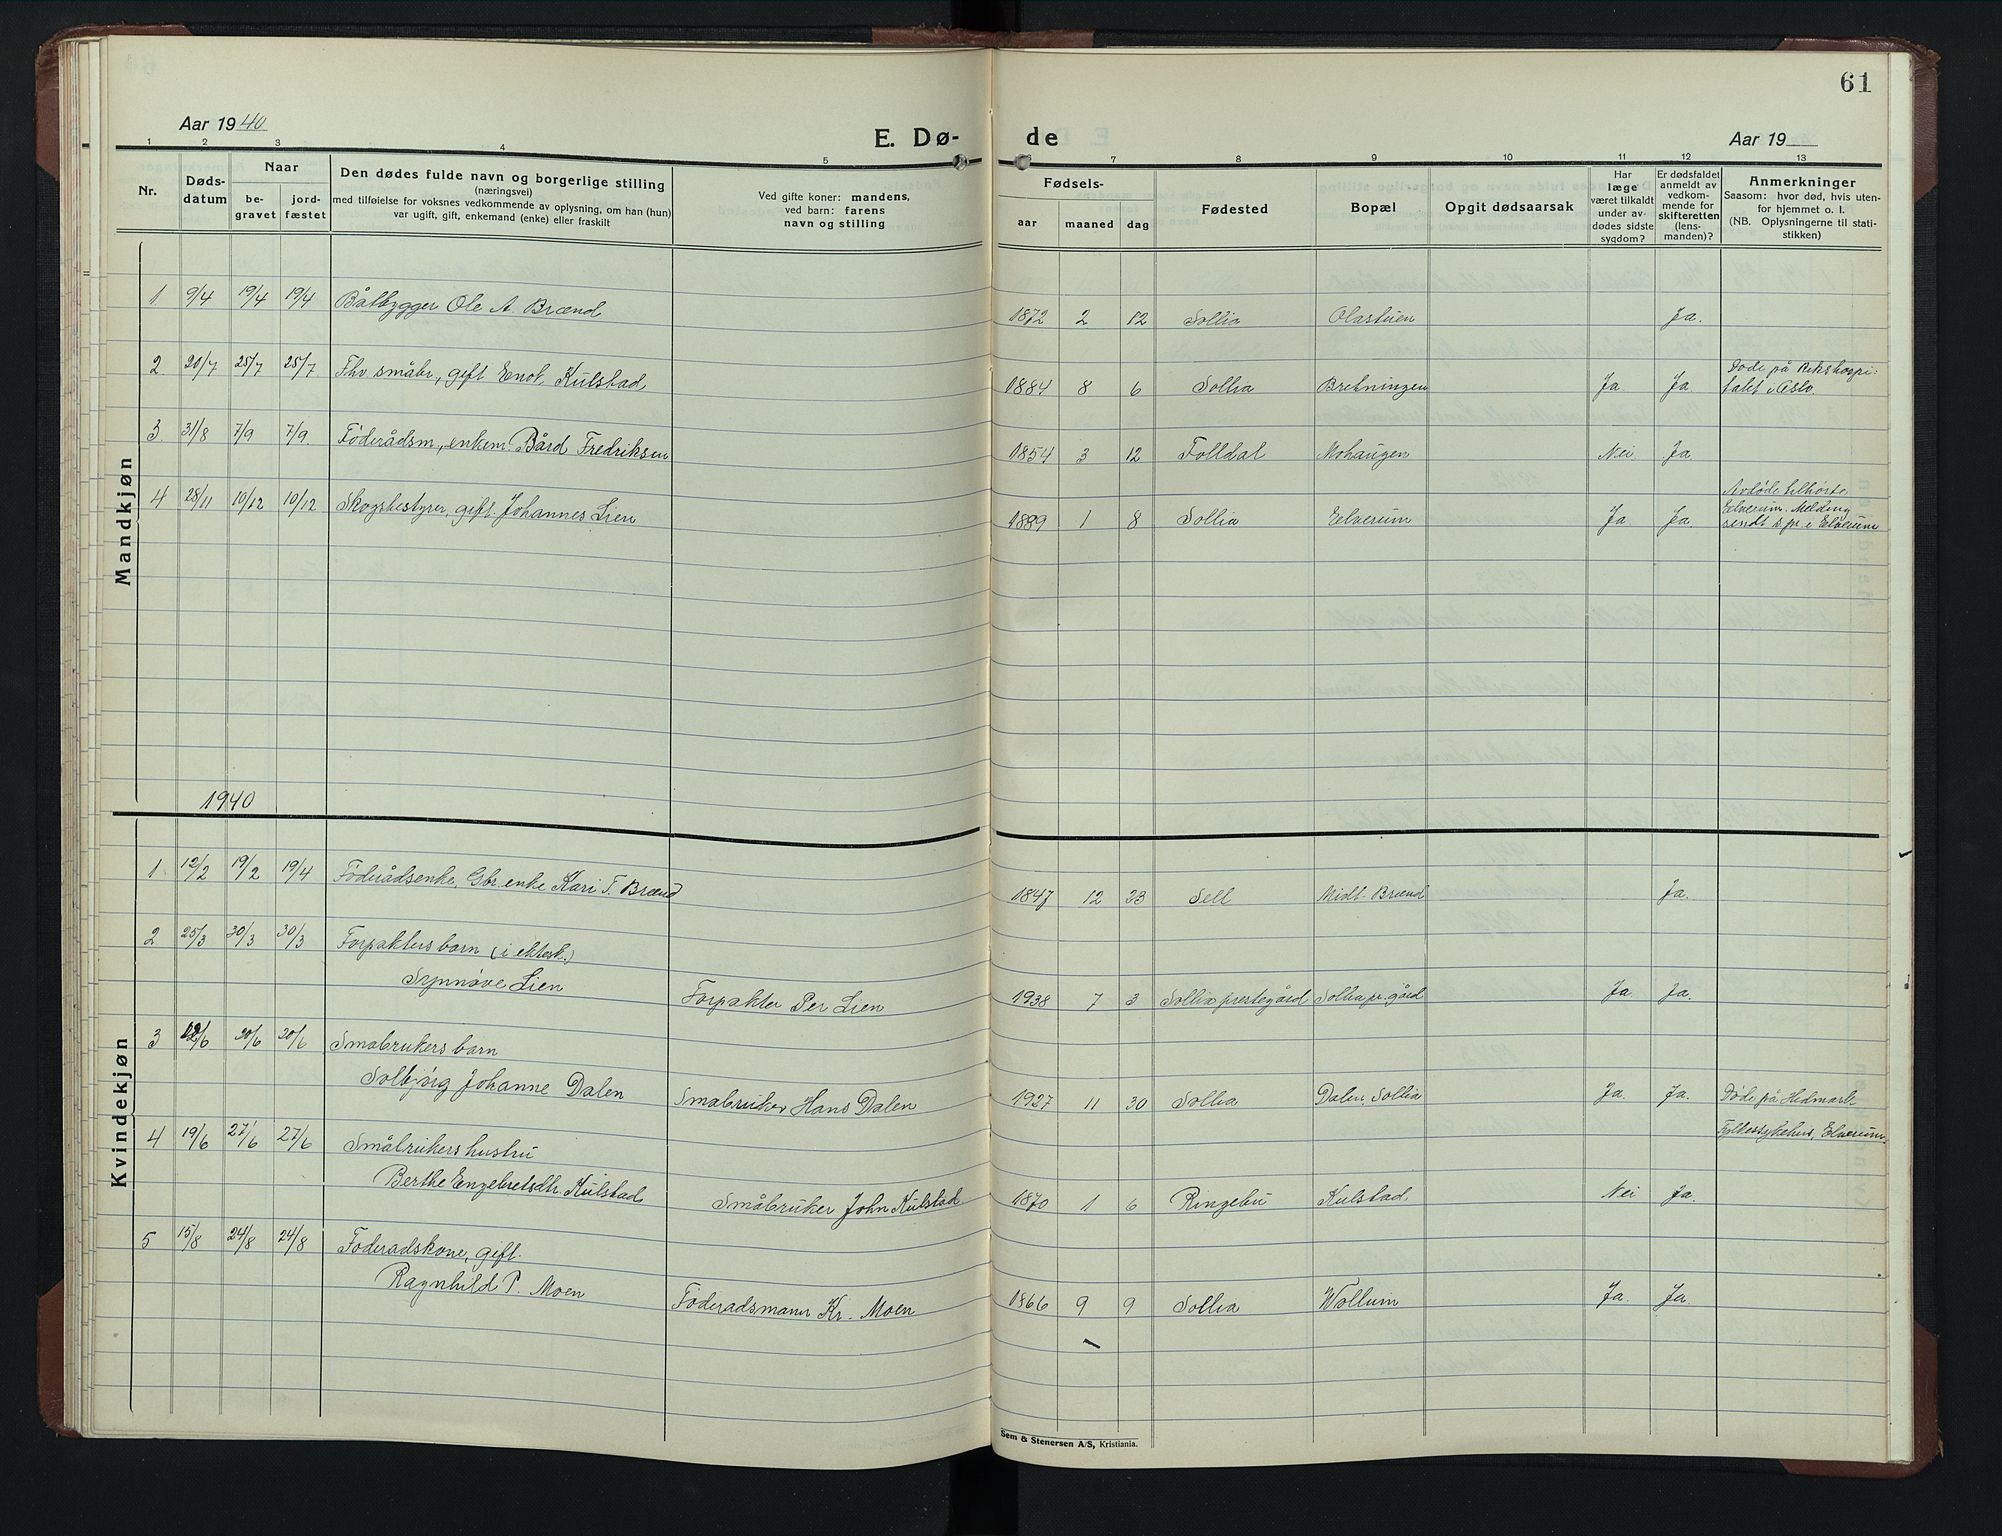 61
Aar 1940
E. Dø-
de
Aar 19
1 2 3 4 5 6 7 8 9 10 11 12 13
Nr.
Døds-
datum
Naar
be-
gravet
jord-
fæstet
Den dødes fulde navn og borgerlige stilling
(næringsvei)
med tilføielse for voksnes vedkommende av oplysning, om han (hun)
var ugift, gift, enkemand (enke) eller fraskilt
Ved gifte koner: mandens,
ved barn: farens
navn og stilling
Fødsels-
aar maaned dag
Fødested
Bopæl
Opgit dødsaarsak
Har
læge
været tilkaldt
under av-
dødes sidste
sygdom?
Er dødsfaldet
anmeldt av
vedkom-
mende for
skifteretten
(lens-
manden)?
Anmerkninger
Saasom: hvor død, hvis uten-
for hjemmet o. l.
(NB. Oplysningerne til stati-
stikken)
Mandkjøn
1 9/4 19/4 19/4 Båtbygger Ole A. Brænd 1872 2 12 Sollia Olastuen Ja.
2 20/7 25/7 25/7 Fhv småbr, gift Enok Kulstad 1884 8 6 Sollia Bretningen Ja Ja Døde på Rikshospi-
talet i Oslo.
3 31/8 7/9 7/9. Føderådsm, enkem. Bård Fredriksen 1854 3 12 Folldal Mohaugen Nei Ja
4 28/11 10/12 10/12 Skogsbestyrer, gift. Johannes Lien 1889 1 8 Sollia Elverum Ja Ja Avdøde tilhørte
Elverum. Melding
sendt s.pr. i Elverum
1940
Kvindekjøn
1 12/2 19/2 19/4 Føderådsenke, Gbr.enke Kari T. Brænd 1847 12 23 Sell Midt-Brænd Ja.
2 25/3 30/3 30/3 Forpakters barn (i ektesk.)
Synnøve Lien Forpakter Per Lien 1938 7 3 Sollia prestegård Sollia pr. gård Ja Ja.
3 12/6 20/6 20/6 Småbrukers barn
Solbjørg Johanne Dalen Småbruker Hans Dalen 1927 11 30 Sollia Dalen, Sollia Ja. Ja. Døde på Hedmark
Fylkessykehus, Elverum.
4 19/6 27/6 27/6 Småbrukers hustru
Berthe Engebretsdtr. Kulstad Småbruker John Kulstad 1870 1 6 Ringebu Kulstad Nei Ja.
5 15/8 24/8 24/8 Føderadskone, gift.
Ragnhild P. Moen Føderadsmann Kr. Moen 1866 9 9 Sollia Wollum Ja. Ja.
Sem & Stenersen A/S, Kristiania.